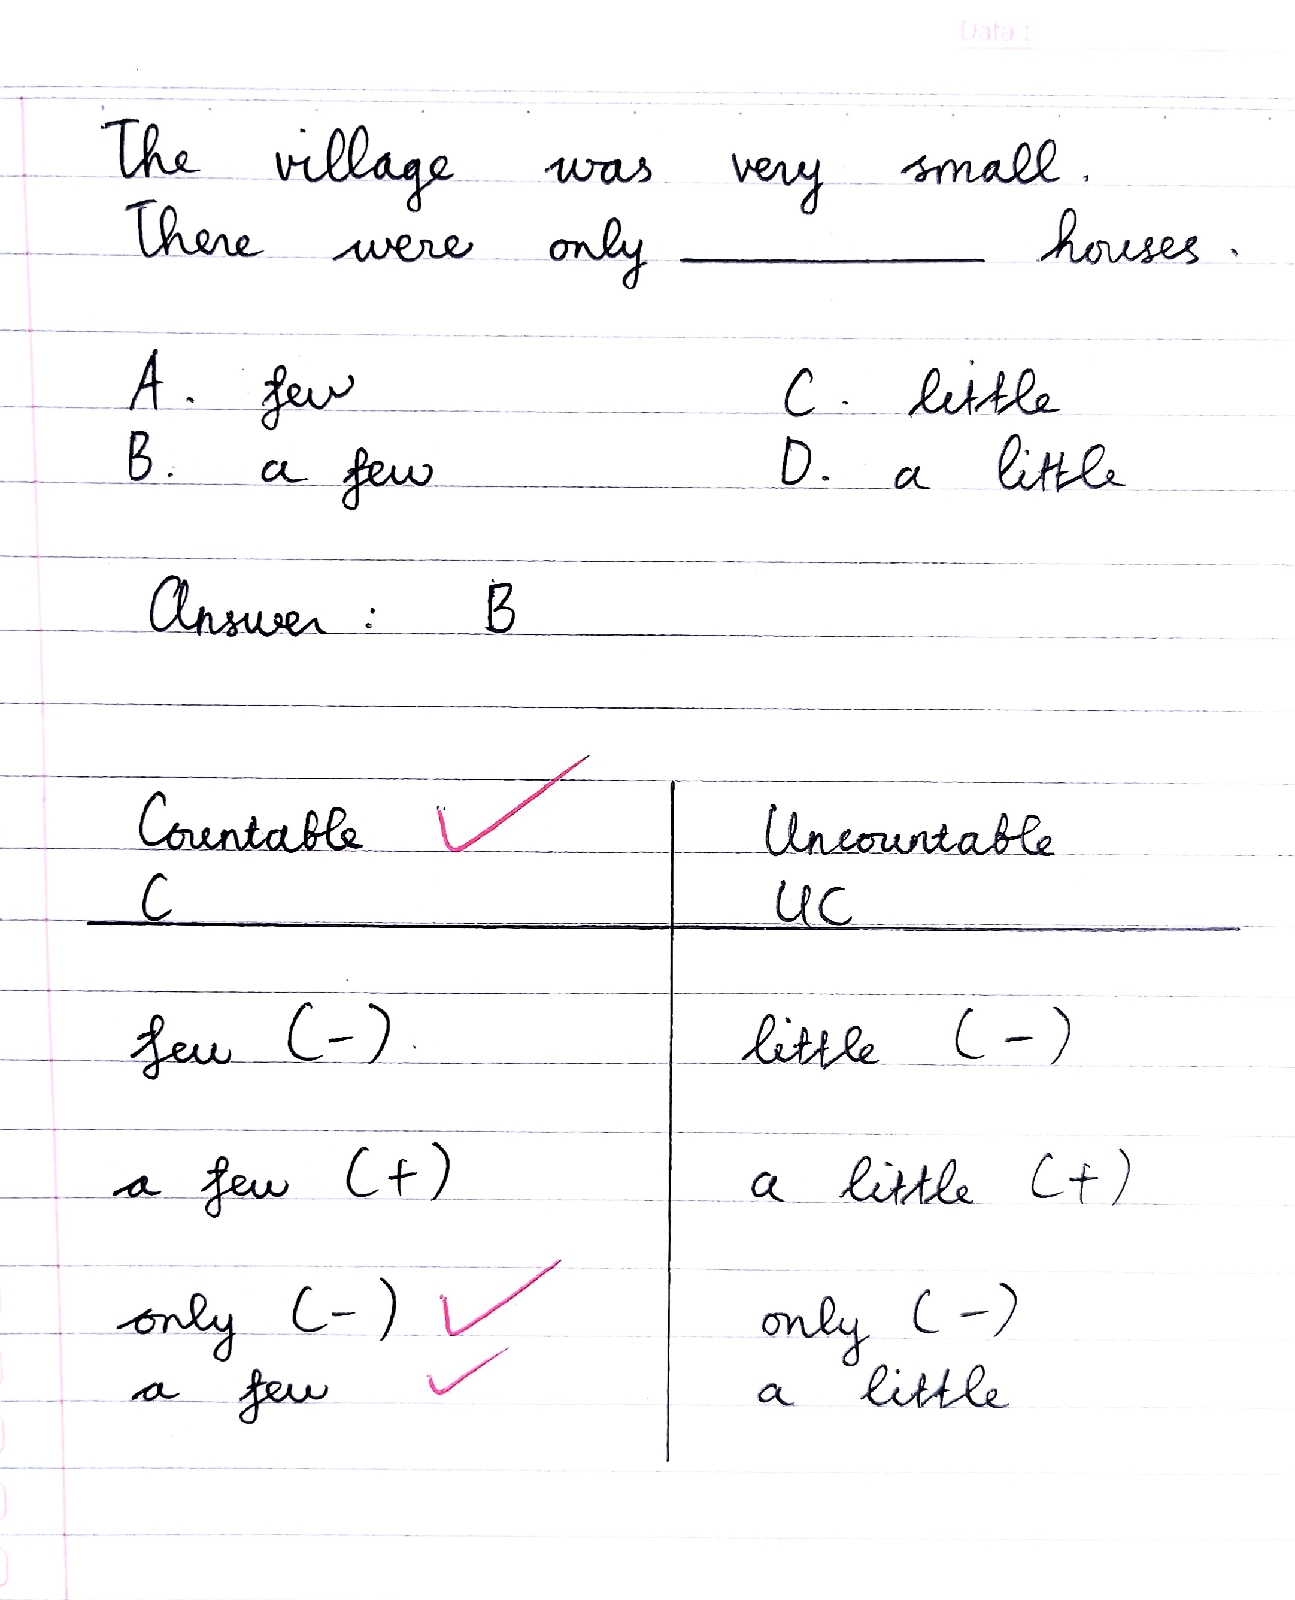 Date :
The village was very small.
There were only ________ houses.
A. few C. little
B. a few D. a little
Answer : B
Countable Uncountable
C UC
few (-) little (-)
a few (+) a little (+)
only (-) only (-)
a few a little